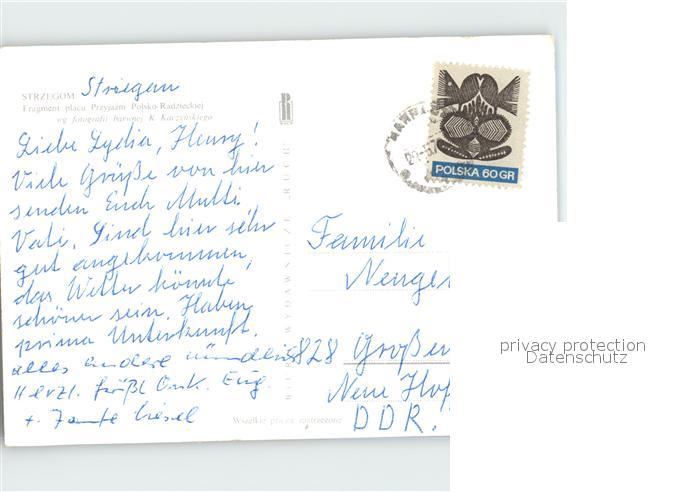 Strzegom
STRZEGOM
Fragment placu Przyjaźni Polsko-Radzieckiej
wg fotografii barwnej K. Kaczyńskiego
Liebe Lydia, Henry!
Viele Grüße von hier
senden Euch Mutti
Vati. Sind hier sehr
gut angekommen,
das Wetter könnte
schöner sein. Haben
prima Unterkunft.
alles andere mündlich
Herzl. grüßt Onk. Eug.
+ Tante Liesel
BIURO WYDAWNICZE „RUCH”
Wszelkie prawa zastrzeżone
POLSKA 60 GR
Familie
Nenger
828 Großen
Neue Hof
DDR.
privacy protection
Datenschutz